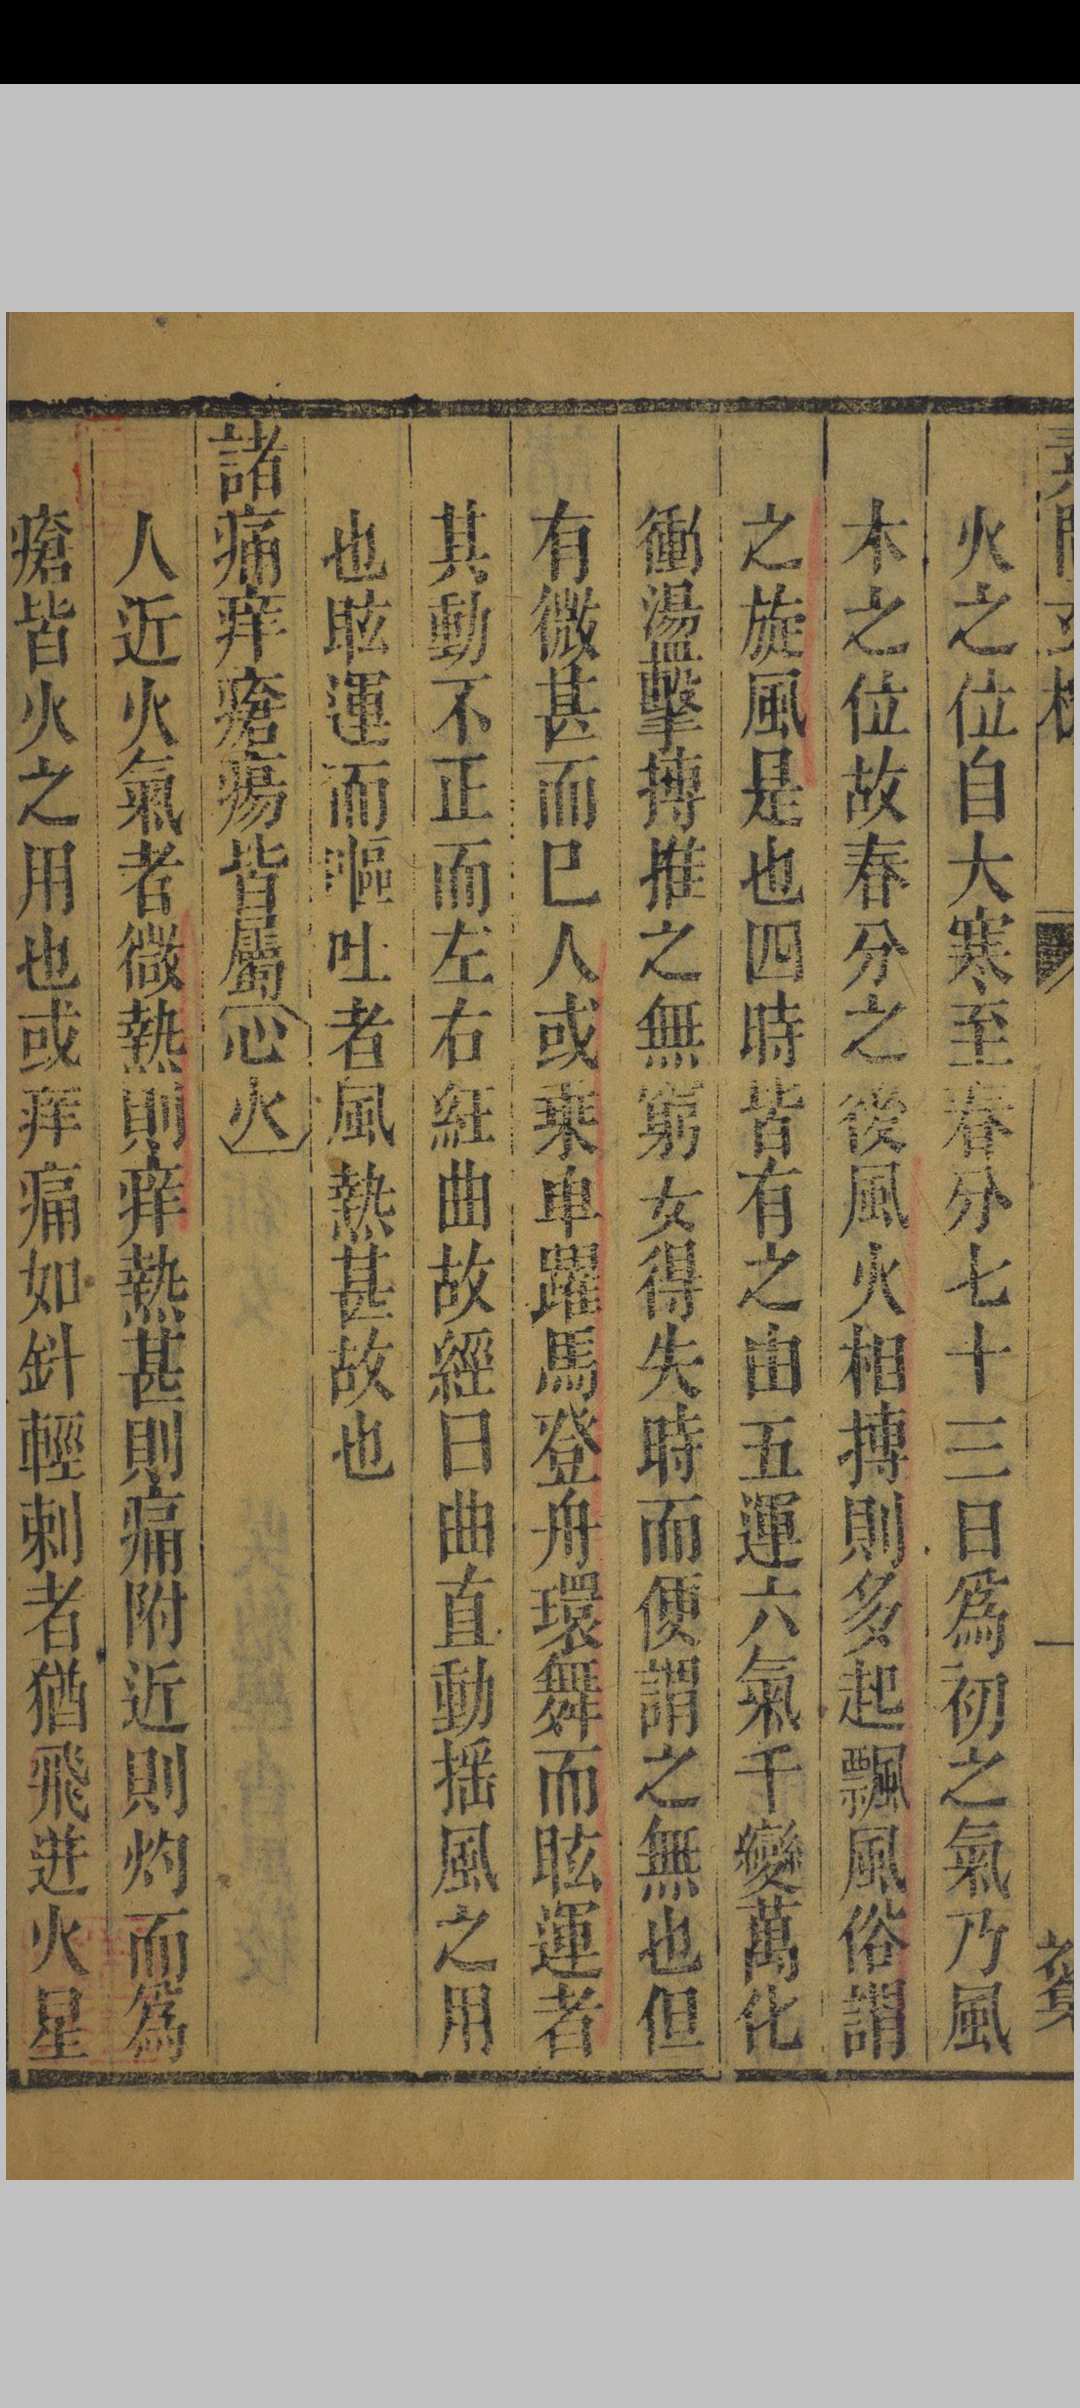 火之位自大寒至春分七十三日爲初之氣乃風
木之位故春分之後風火相搏則多起飄風俗謂
之旋風是也四時皆有之由五運六氣千變萬化
衝盪擊搏推之無窮女得失時而便謂之無也但
有微甚而巳人或乘車躍馬登舟環舞而眩運者
其動不正而左右紆曲故經曰曲直動揺風之用
也眩運而嘔吐者風熱甚故也
諸痛痒瘡瘍皆屬心火
人近火氣者微熱則痒熱甚則痛附近則灼而爲
瘡皆火之用也或痒痛如針輕刺者猶飛迸火星